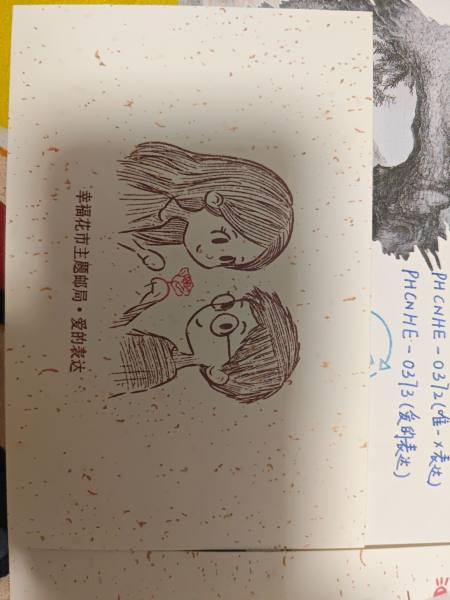 幸福花市主题邮局·爱的表达
PHCNHE-0372(唯一x表达)
PHCNHE-0373(爱的表达)